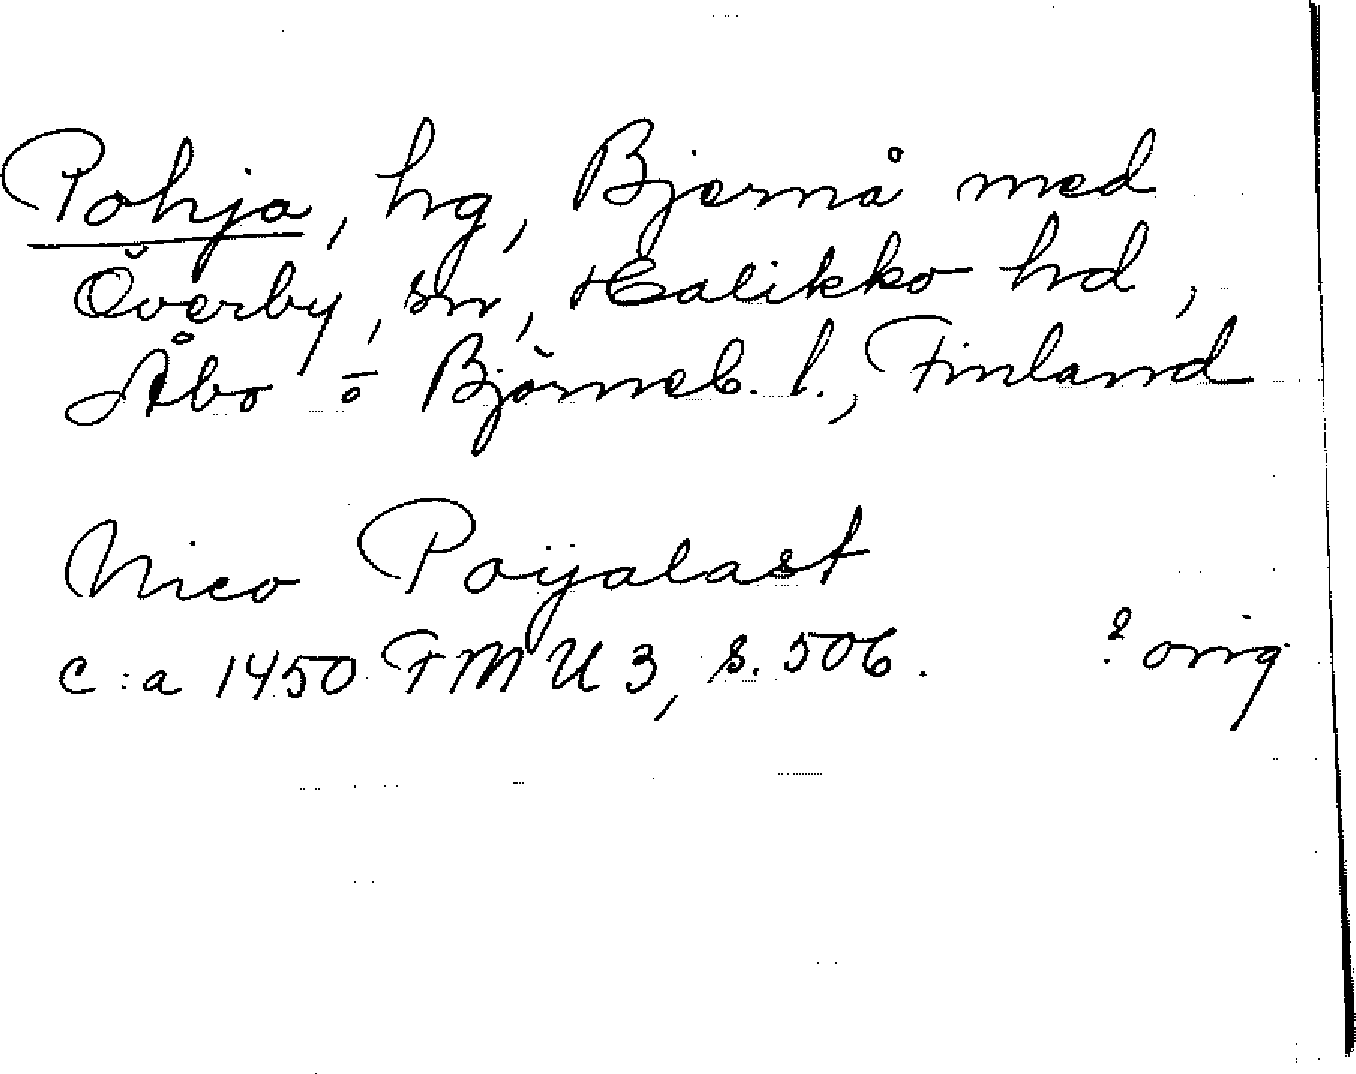 Pohja, hg, Bjernå med
Överby, sn, Halikko hd,
Åbo o Björneb. l., Finland
Nico Poÿalast
c:a 1450 FMU 3, s. 506. ? orig